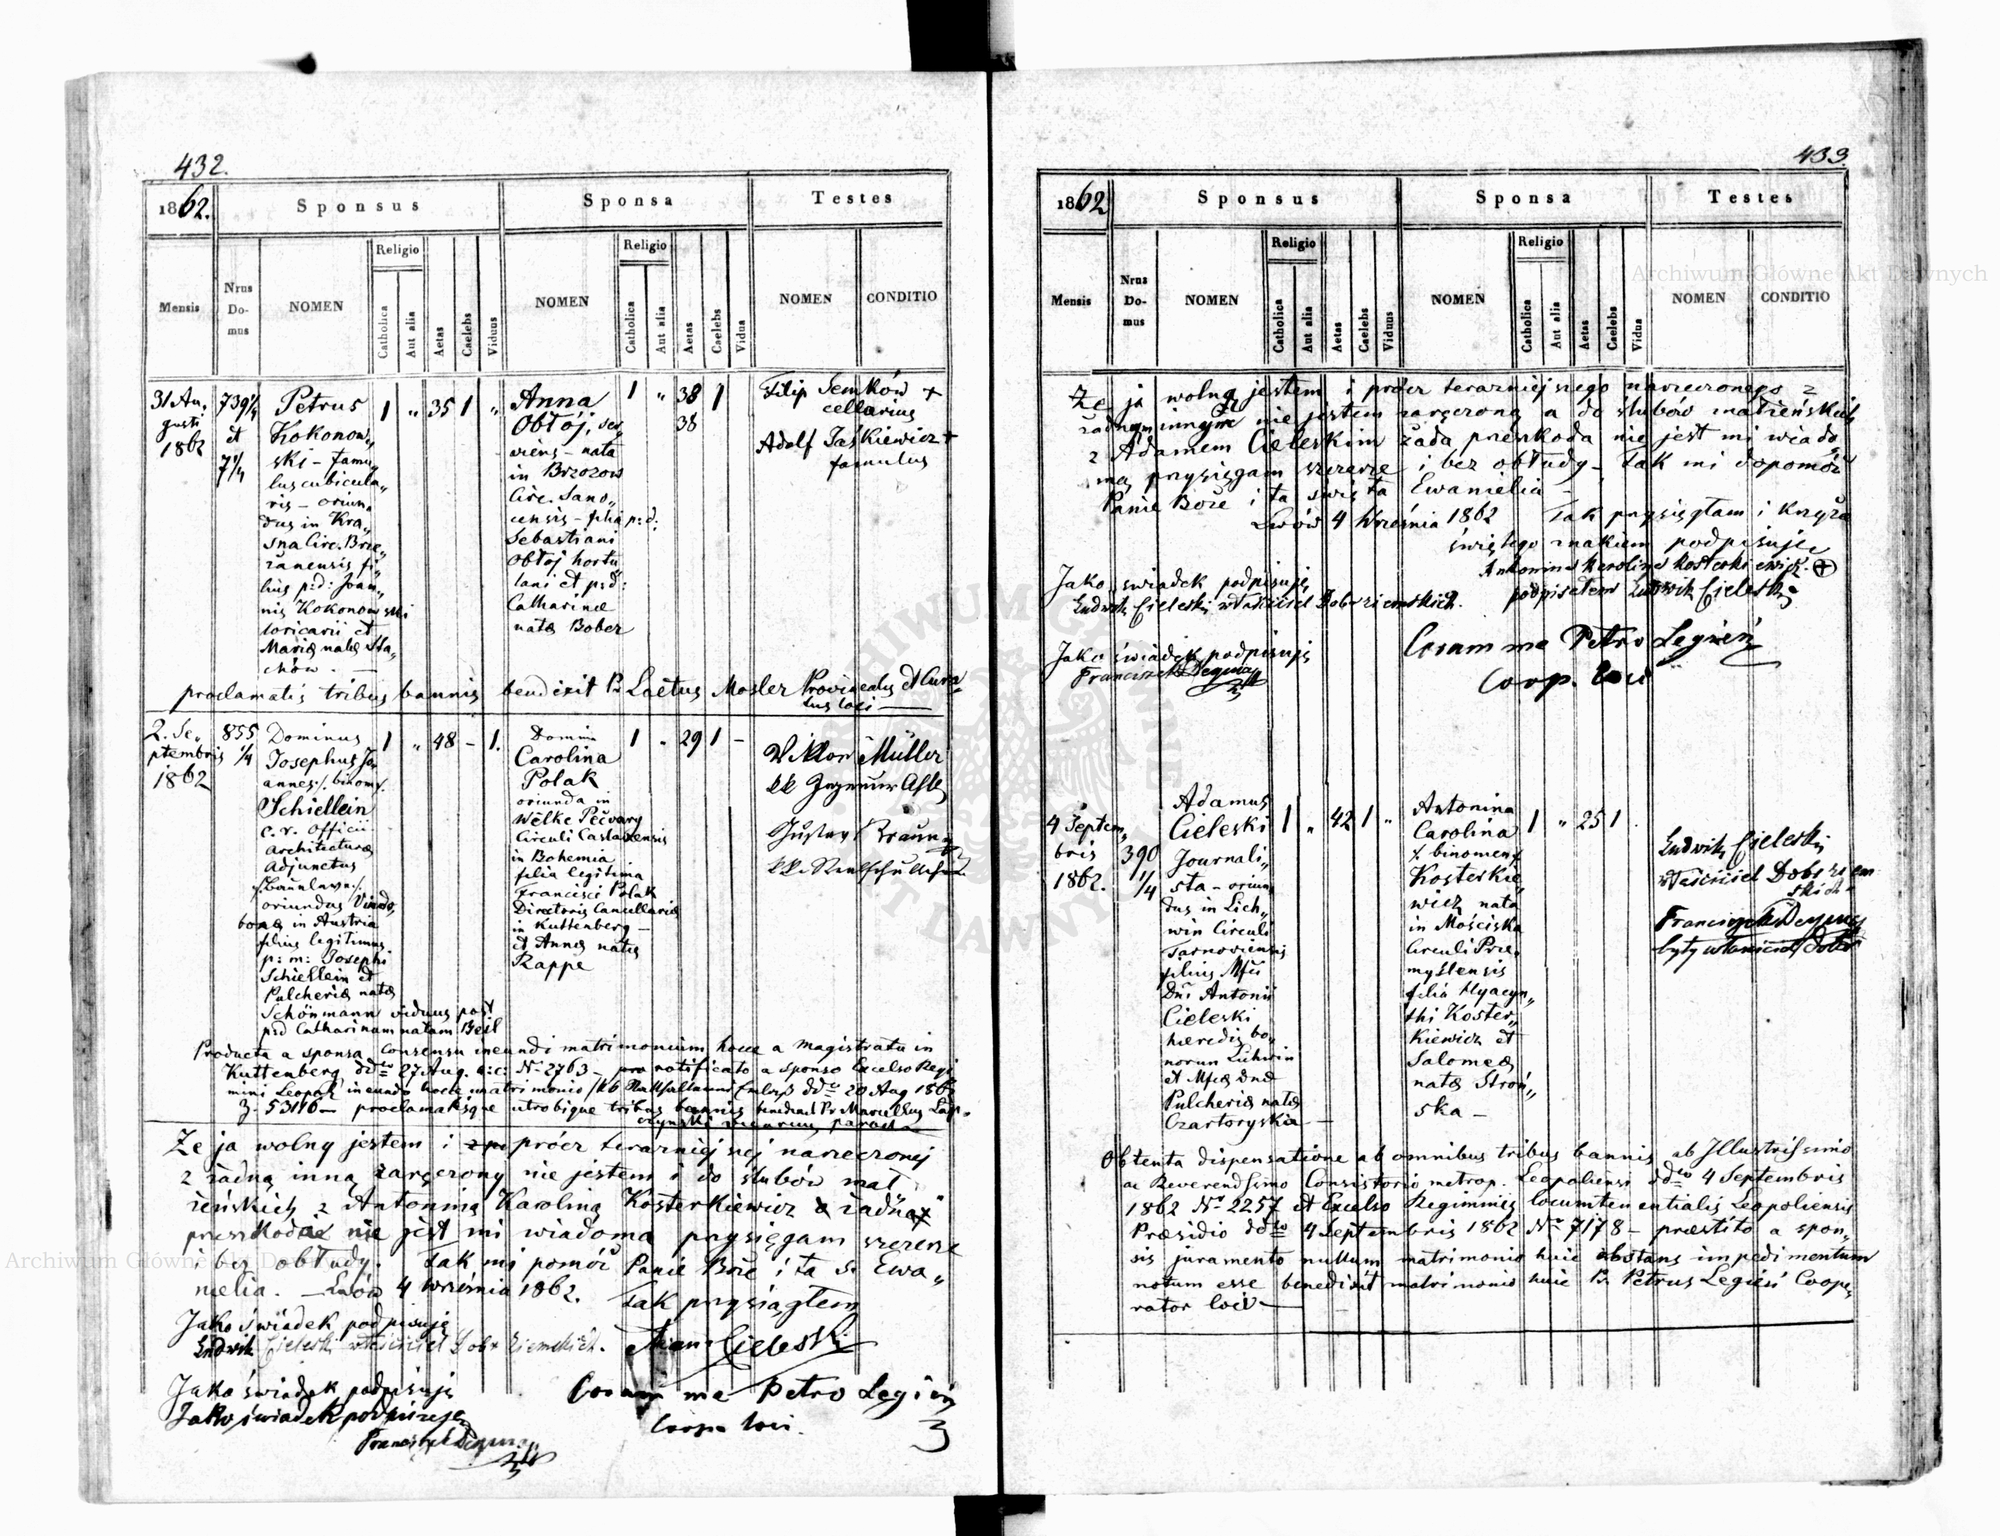 432.
1862.
Sponsus
Sponsa
Testes
Mensis
Nrus Domus
NOMEN
Religio
Catholica
Aut alia
Aetas
Caelebs
Viduus
NOMEN
Religio
Catholica
Aut alia
Aetas
Caelebs
Vidua
NOMEN
CONDITIO
31 Au„
gusti
1862
739 1/4
et
7 1/4
Petrus
Kokonow„
ski – famu„
lus cubicula„
ris – oriun„
dus in Kra„
sna Circ. Brze„
žanensis fi„
lius p: d: Joan„
nis Kokonowski
loricarii et
Mariæ natæ Sta„
chów. —
1 „ 35 1 „
Anna
Obłój, ser„
viens – nata
in Brzozow
Circ. Sano„
censis – filia p: d:
Sebastiani
Obłój hortu„
lani et p: d:
Catharinæ
natæ Bober
1 „ 38 1
38
Filip Semków +
cellarius
Adolf Jaśkiewicz +
famulus
proclamatis tribus bannis benedixit P. Laetus Mosler Provincialis et Cura„
tus loci —
2. Se„
ptembris
1862
855
1/4
Dominus
Josephus Jo„
annes ./. binom ./.
Schiellein
c. r. Officii
Architecturæ
Adjunctus
oriundus Vindo„
bonæ in Austria
filius legitimus
p: m: Josephi
Schiellein et
Pulcheriæ natæ
Schönmann viduus post
p: d Catharinam natam Beil
1 „ 48 – 1.
Domina
Carolina
Polak
oriunda in
Welke Pečvary
Circuli Caslaviensis
in Bohemia
filia legitima
Francisci Polak
Directoris Cancellariæ
in Kuttenberg –
et Annæ natæ
Rappe
1 „ 29 1 –
Viktor Müller
kk Ingenieur Asst.
Gustav Braun
Producta a sponsa consensu ineundi matrimonium hocce a magistratu in
Kuttenberg ddto 27 Aug. a: c: No 2763 – pro notificato a sponso Excelso Regi„
mini Leopol. ineundo hocce matrimonio ddto 20 Aug 1862
Z. 53116 – proclamatisque utrobique tribus bannis benedixit Pr Marcellus
Že ja wolny jestem i prócz terazniejszej narzeczonej
z żadną inną zaręczony nie jestem i do ślubów mał„
żeńskich z Antoniną Karoliną Kosterkiewicz żadna
przeszkoda nie jest mi wiadoma przysięgam szczerze
i bez obłudy. Tak mi pomóż Panie Boże i ta s. Ewa„
nielia. – Lwów 4 Września 1862. Tak przysiągłem
Jako świadek podpisuję
Ludwik Cieleski właściciel Dobr ziemskich. Adam Cieleski
Jako świadek podpisuję Coram me Petro Legień
Jako świadek podpisuję Coop. loci.
433.
1862
Sponsus
Sponsa
Testes
Mensis
Nrus Domus
NOMEN
Religio
Catholica
Aut alia
Aetas
Caelebs
Viduus
NOMEN
Religio
Catholica
Aut alia
Aetas
Caelebs
Vidua
NOMEN
CONDITIO
Że ja wolną jestem i prócz terazniejszego narzeczonego z
żadnym innym nie jestem zaręczoną a do ślubów małżeńskich
z Adamem Cieleskim żada przeskoda nie jest mi wiado„
ma, przysięgam szczerze i bez obłudy – Tak mi dopomóż
Panie Boże i ta święta Ewanielia –
Lwów 4 Września 1862 Tak przysięgłam i krzyża
świętego znakiem podpisuję
Antonina Karolina Kosterkiewicz. ⊕
Jako świadek podpisuję
Ludwik Cieleski właściciel Dobr ziemskich. podpisałem Ludwik Cieleski
Jako świadek podpisuję
Coram me Petro Legień
Coop. loci
4 Septem„
bris
1862.
390
1/4
Adamus
Cieleski
Journali„
sta – oriun„
dus in Lich„
win Circuli
Tarnoviensis
filius Mfci
Dni Antonii
Cieleski
hæredis bo„
norum Lichwin
et Mfcæ Dnæ
Pulcheriæ natæ
Czartoryska –
1 „ 42 1 „
Antonina
Carolina
./. binomen ./.
Kosterkie„
wicz nata
in Mościska
Circuli Prze„
myslensis
filia Hyacyn„
thi Koster„
kiewicz et
Salomeæ
natæ Stroń„
ska –
1 „ 25 1
Ludwik Cieleski
właściciel Dobr ziem„
skich
były właściciel Dobr
Obtenta dispensatione ab omnibus tribus bannis ab Illustrissimo
ac Reverendissimo Consistorio metrop. Leopoliensi ddto 4 Septembris
1862 No 2257 et Excelso Regiminis locumtenentialis Leopoliensis
Præsidio ddto 4 Septembris 1862 No 7178 – præstito a spon„
sis juramento nullum matrimonio huic obstans impedimentum
notum esse benedixit matrimonio huic P. Petrus Legień Coope„
rator loci —
Archiwum Główne Akt Dawnych
Archiwum Główne Akt Dawnych
ARCHIWUM GŁÓWNE AKT DAWNYCH